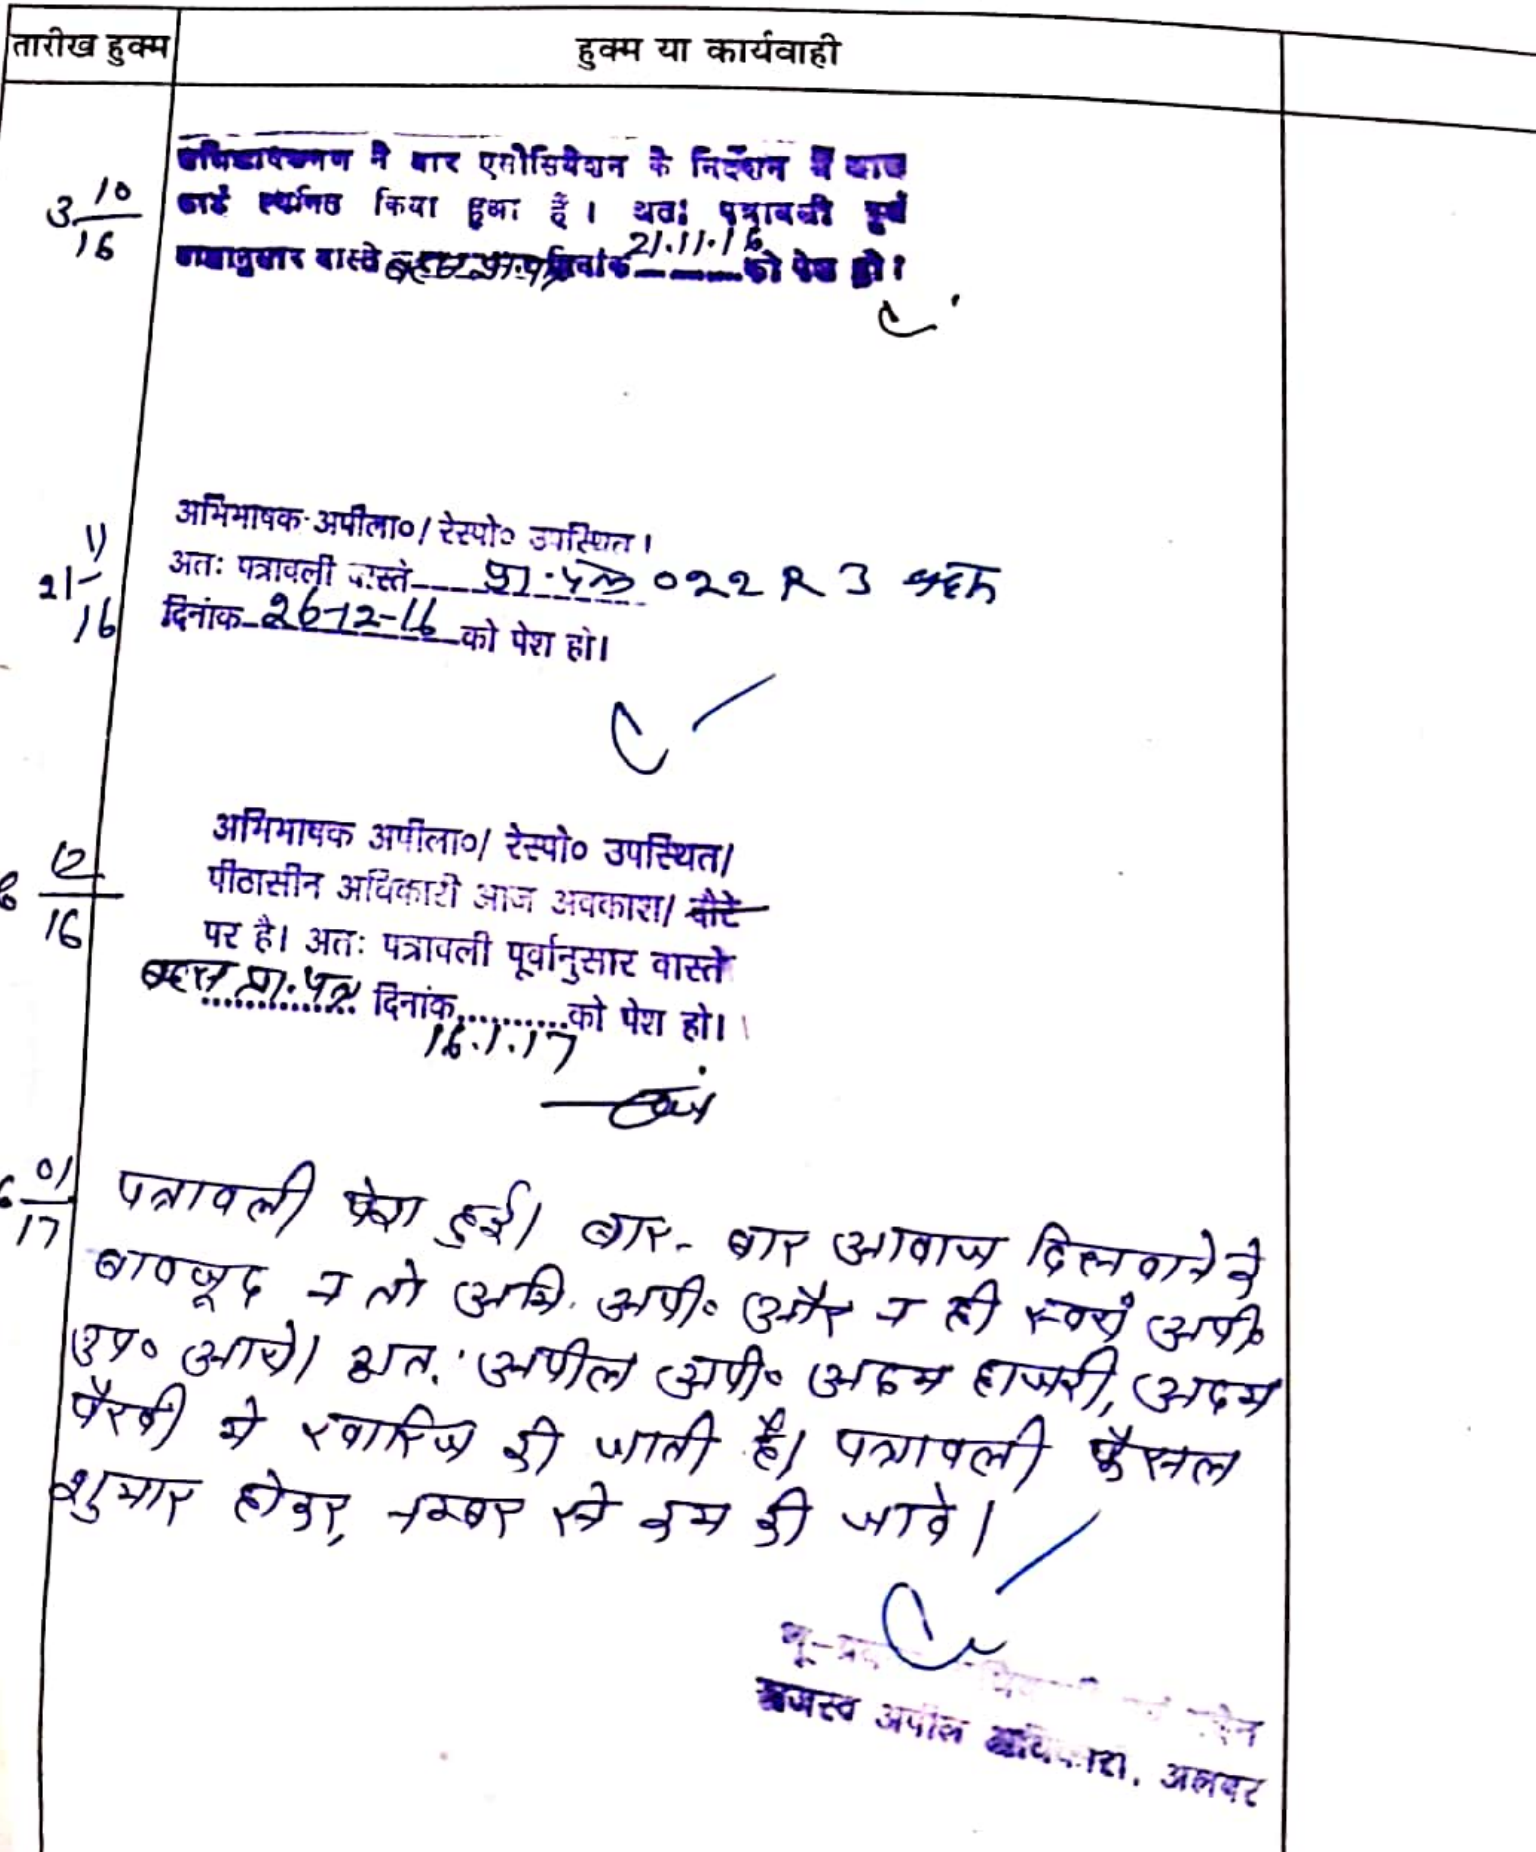 तारीख हुक्म
हुक्म या कार्यवाही
3 10/16
ने बार एसोसियेशन के निर्देशन में
कार्य स्थगित किया हुआ है। अतः पत्रावली पूर्व
वास्ते बहस प्रा.पत्र दिनांक 21.11.16 को पेश हो।
21 11/16
अभिभाषक अपीला०/ रेस्पो० उपस्थित।
अतः पत्रावली वास्ते प्रा.पत्र 022 R 3 बहस
दिनांक 26-12-16 को पेश हो।
6 12/16
अभिभाषक अपीला०/ रेस्पो० उपस्थित/
पीठासीन अधिकारी आज अवकाश/ दौरे
पर है। अतः पत्रावली पूर्वानुसार वास्ते
बहस प्रा.पत्र दिनांक..........को पेश हो।
16.1.17
6 01/17
पत्रावली पेश हुई। बार-बार आवाज दिलवाने के
बावजूद न तो अभि. अपी० और न ही स्वयं अपी०
उप० आये। अतः अपील अपी० अदम हाजरी, अदम
पैरवी मे खारिज की जाती है। पत्रावली फैसल
शुमार होकर, नम्बर से कम की जावे।
भू-
राजस्व अपील अधिकारी, अलवर